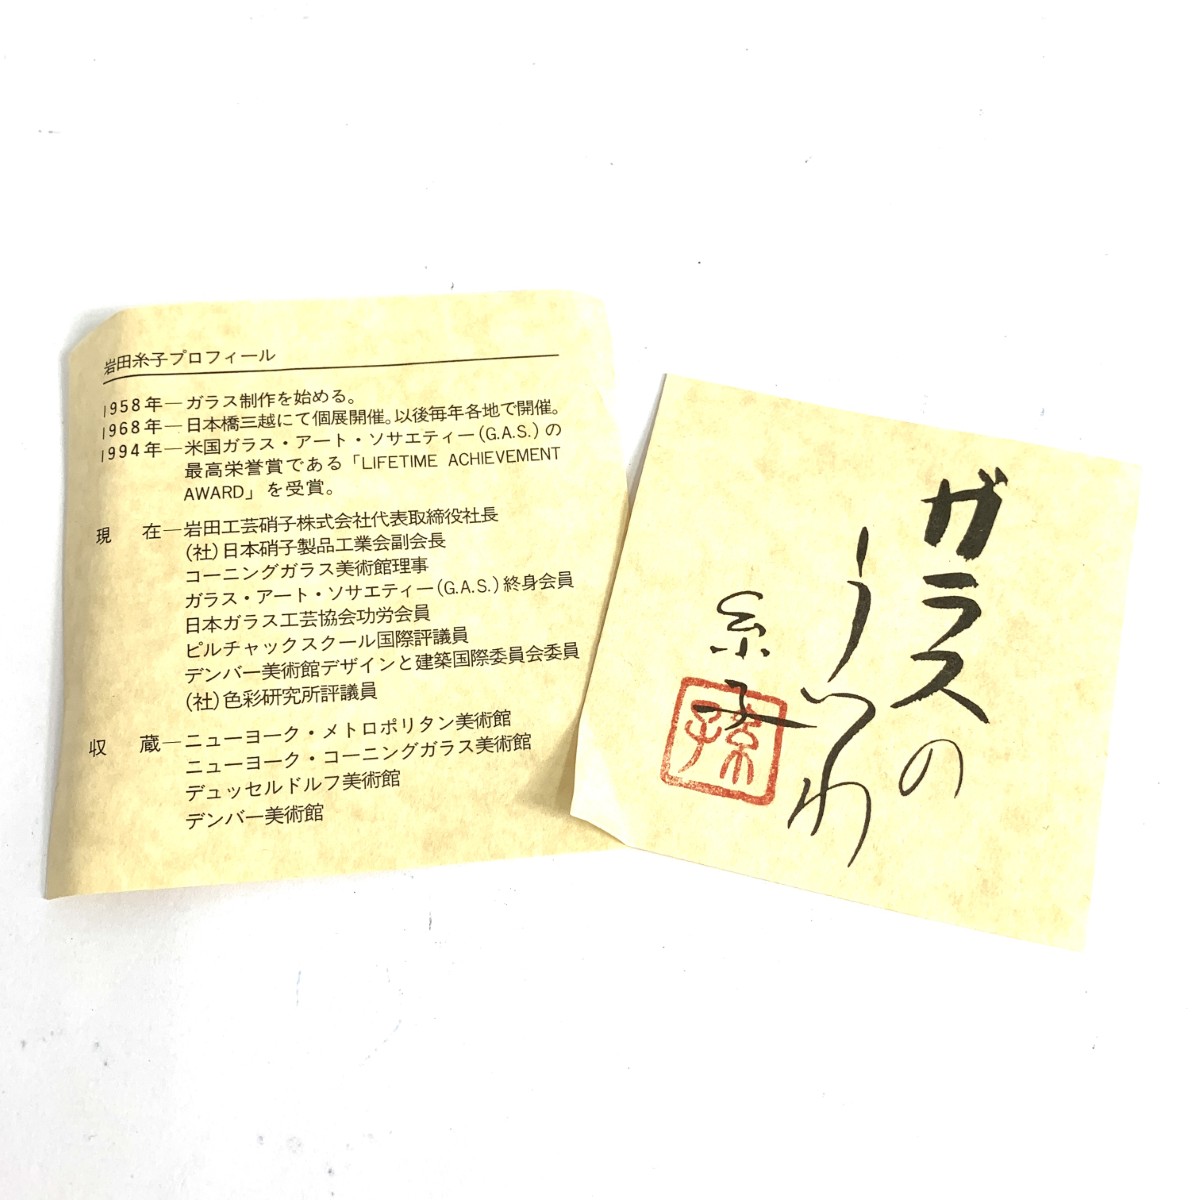 岩田糸子プロフィール
1958年―ガラス制作を始める。
1968年―日本橋三越にて個展開催。以後毎年各地で開催。
1994年―米国ガラス・アート・ソサエティー(G.A.S.)の
最高栄誉賞である「LIFETIME ACHIEVEMENT
AWARD」を受賞。
現　在―岩田工芸硝子株式会社代表取締役社長
(社)日本硝子製品工業会副会長
コーニングガラス美術館理事
ガラス・アート・ソサエティー(G.A.S.)終身会員
日本ガラス工芸協会功労会員
ピルチャックスクール国際評議員
デンバー美術館デザインと建築国際委員会委員
(社)色彩研究所評議員
収　蔵―ニューヨーク・メトロポリタン美術館
ニューヨーク・コーニングガラス美術館
デュッセルドルフ美術館
デンバー美術館
ガラスの
うつわ
糸子
糸子